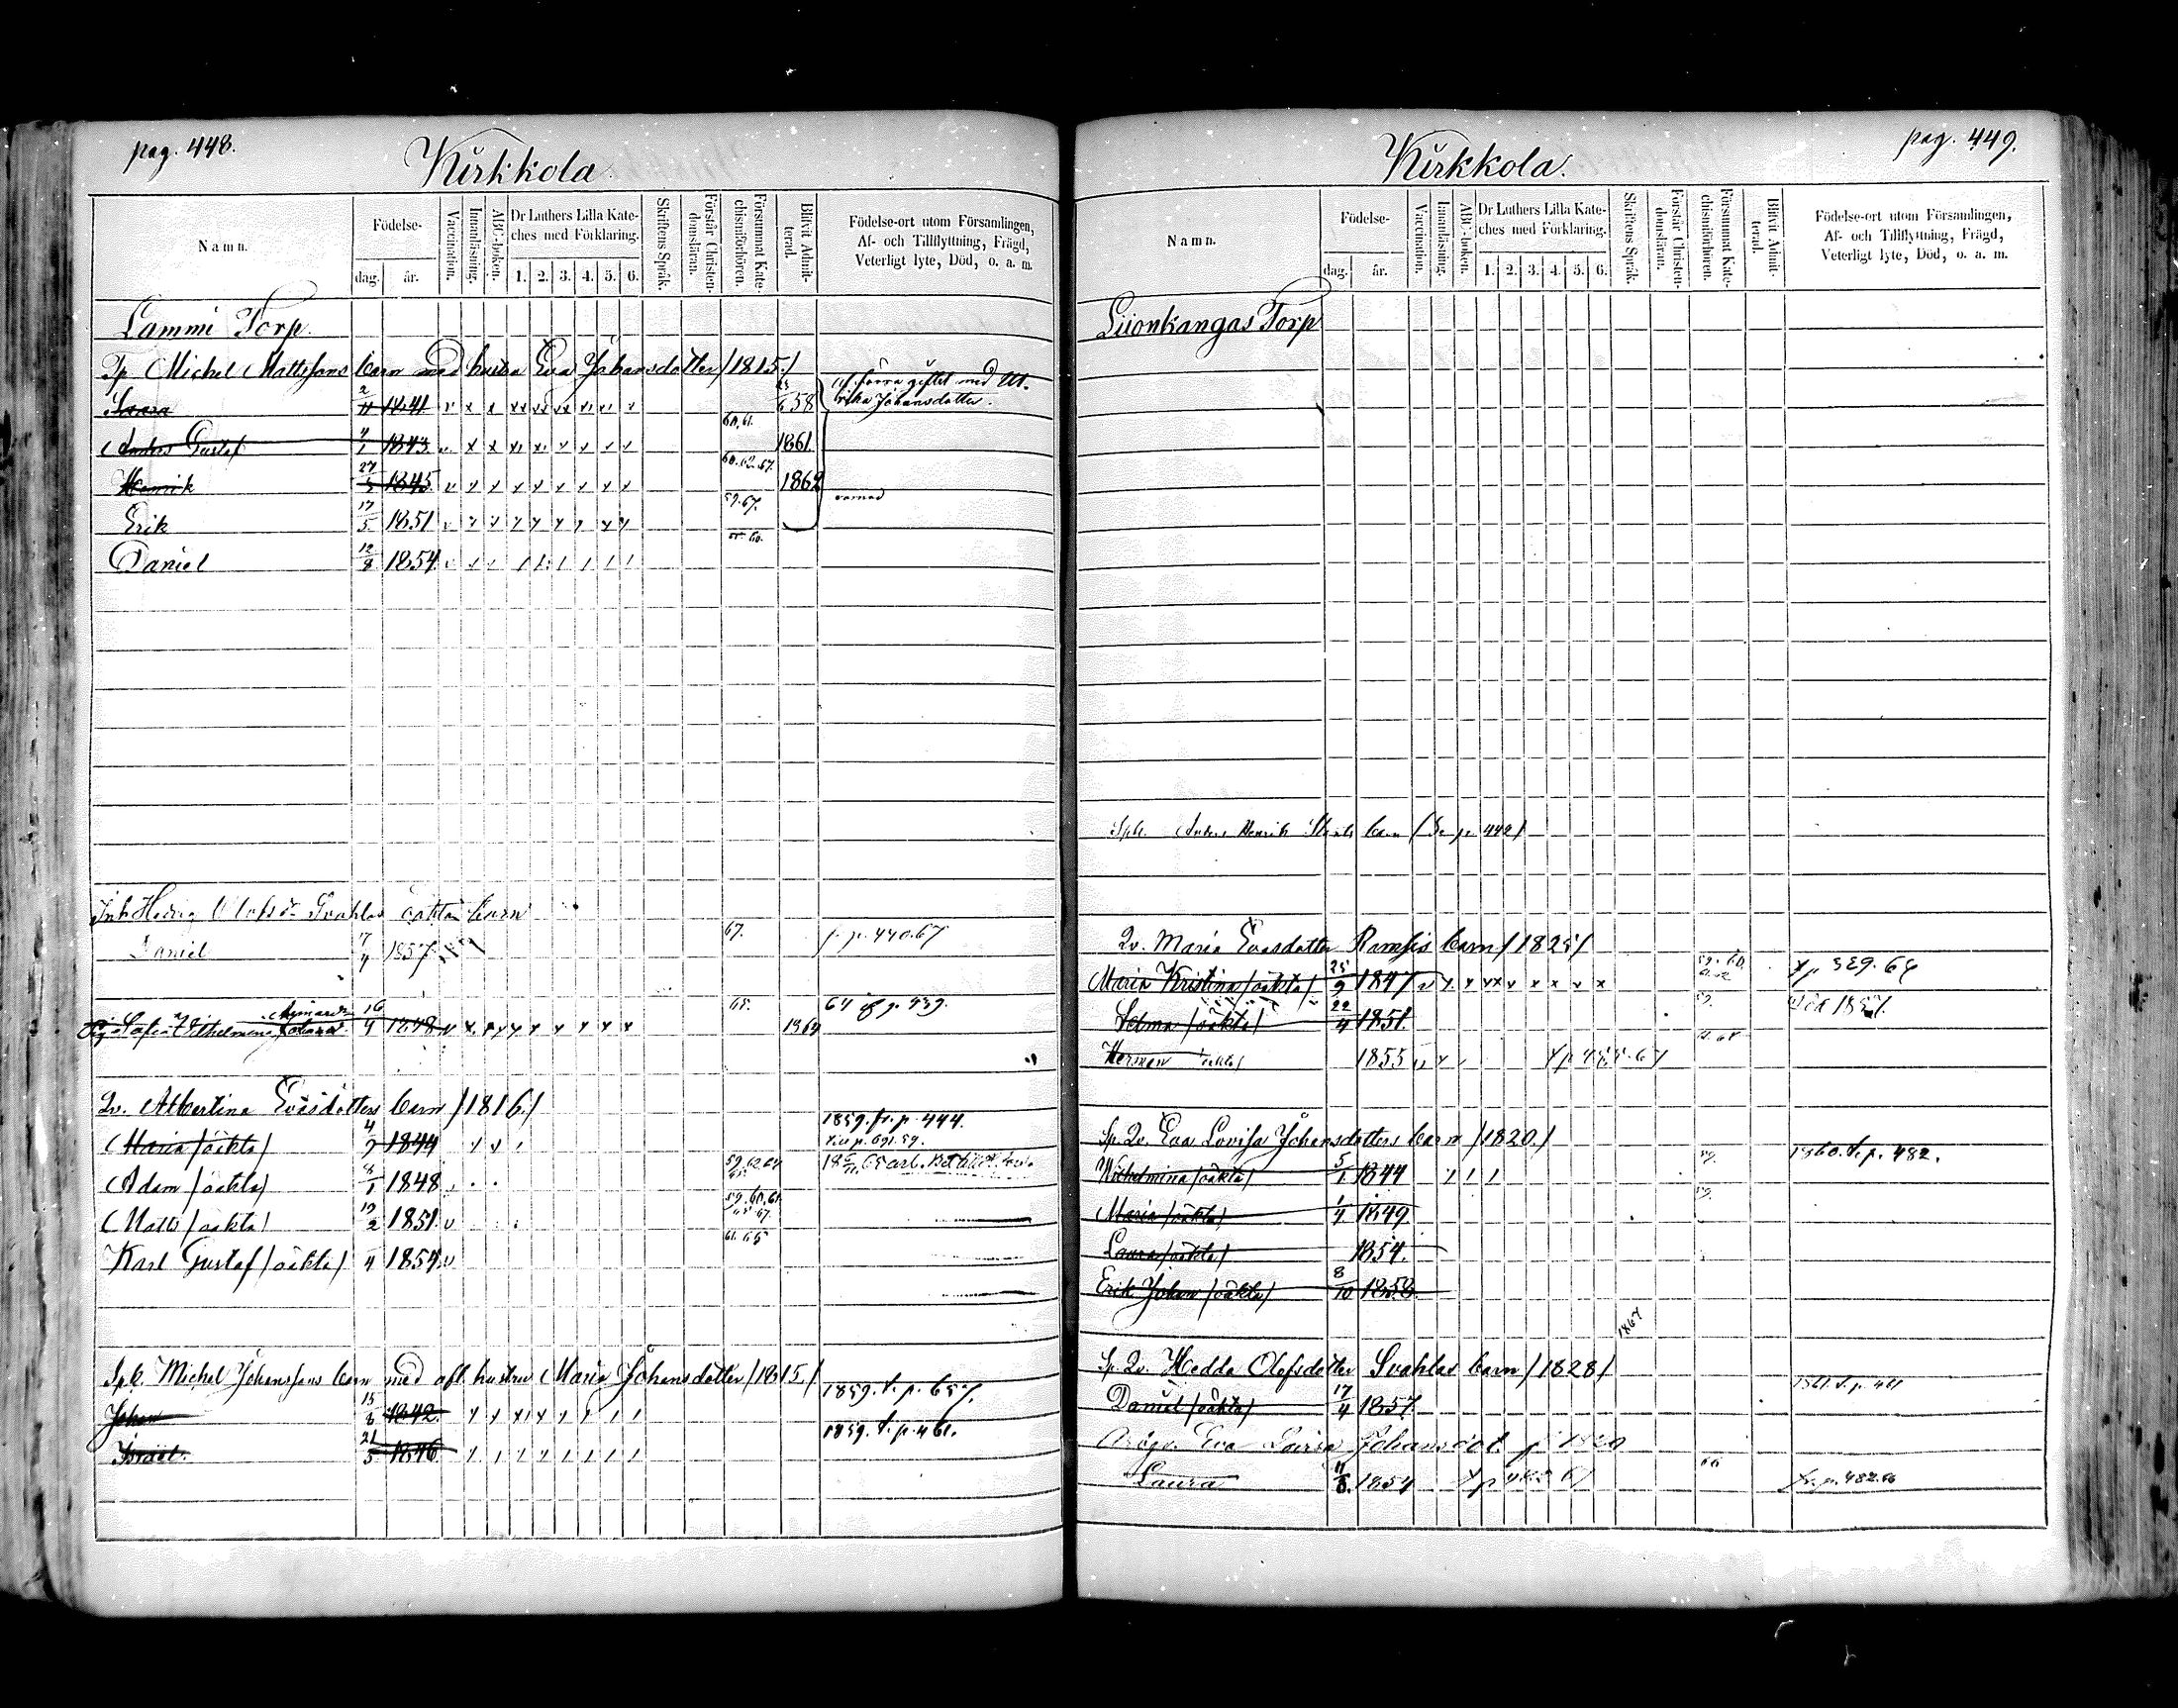 pag. 448.
Kirkkola
Namn.
Födelse-
dag.
år.
Vaccination.
Innanläsning.
ABC-boken.
Dr Luthers Lilla Kate-
ches med Förklaring.
1. 2. 3. 4. 5. 6.
Skriftens Språk.
Förstår Christen-
domsläran.
Försummat Kate-
chismiförhören.
Blifvit Admit-
terad.
Födelse-ort utom Församlingen,
Af- och Tillflyttning, Frägd,
Veterligt lyte, Död, o. a. m.
Lammi Torp.
Tp Michel Mattssons barn med hustru Eva Johansdotter /1815/
Saara 2/11 1841 58 af förra giftet med Ul-
rika Johansdotter.
Anders Gustaf 4/1 1843 60,61. 1861
Henrik 27/3 1845 60.62.67. 1862
Erik 17/5 1851 59.67.
Daniel 12/8 1854 60.
Inh Hedvig Olofsdr Svahlas oäkta barn
Daniel 17/4 1857 67. f. p. 440.67
16/4 1848 65. 1864 64 p. 439.
Qv. Albertina Evasdotters barn /1816/
Maria /oäkta/ 4/9 1844 1859. fr. p. 444.
Adam /oäkta/ 8/1 1848 59.62.64
Matts /oäkta/ 19/2 1851 59.60.61.
Karl Gustaf /oäkta/ 4 1854 61.65
Sph. Michel Johanssons barn med afl. hustru Maria Johansdotter /1815/
Johan 15/8 1842 1859. t. p. 657.
Israel 21/5 1846 1859. t. p. 461.
pag. 449.
Kirkkola.
Namn.
Födelse-
dag.
år.
Vaccination.
Innanläsning.
ABC-boken.
Dr Luthers Lilla Kate-
ches med Förklaring.
1. 2. 3. 4. 5. 6.
Skriftens Språk.
Förstår Christen-
domsläran.
Försummat Kate-
chismiförhören.
Blifvit Admit-
terad.
Födelse-ort utom Församlingen,
Af- och Tillflyttning, Frägd,
Veterligt lyte, Död, o. a. m.
Liionkangas Torp
Sph. Anders Henrik barn (Se p. 442)
Qv. Maria Evasdotter Ramsis barn /1825/
Maria Kristina /oäkta/ 25/9 1847 59.60. t p. 329.64
Selma /oäkta/ 22/4 1851 59. Död 1857.
Herman oäkta/ 1855
Sp. Qv. Eva Lovisa Johansdotters barn /1820/
Wilhelmina /oäkta/ 5/1 1844 59. 1860. t. p. 482.
Maria /oäkta/ 1/4 1849 59.
Laura /oäkta/ 1854.
Erik Johan /oäkta/ 8/10 1858
1867
Sp. Qv. Hedda Olofsdotter Svahlas barn /1828/
Daniel /oäkta/ 17/4 1857 1861. t. p. 461
Eva Lovisa Johansdot f 1820
Laura 11/8 1854 66 fr. p. 482.66